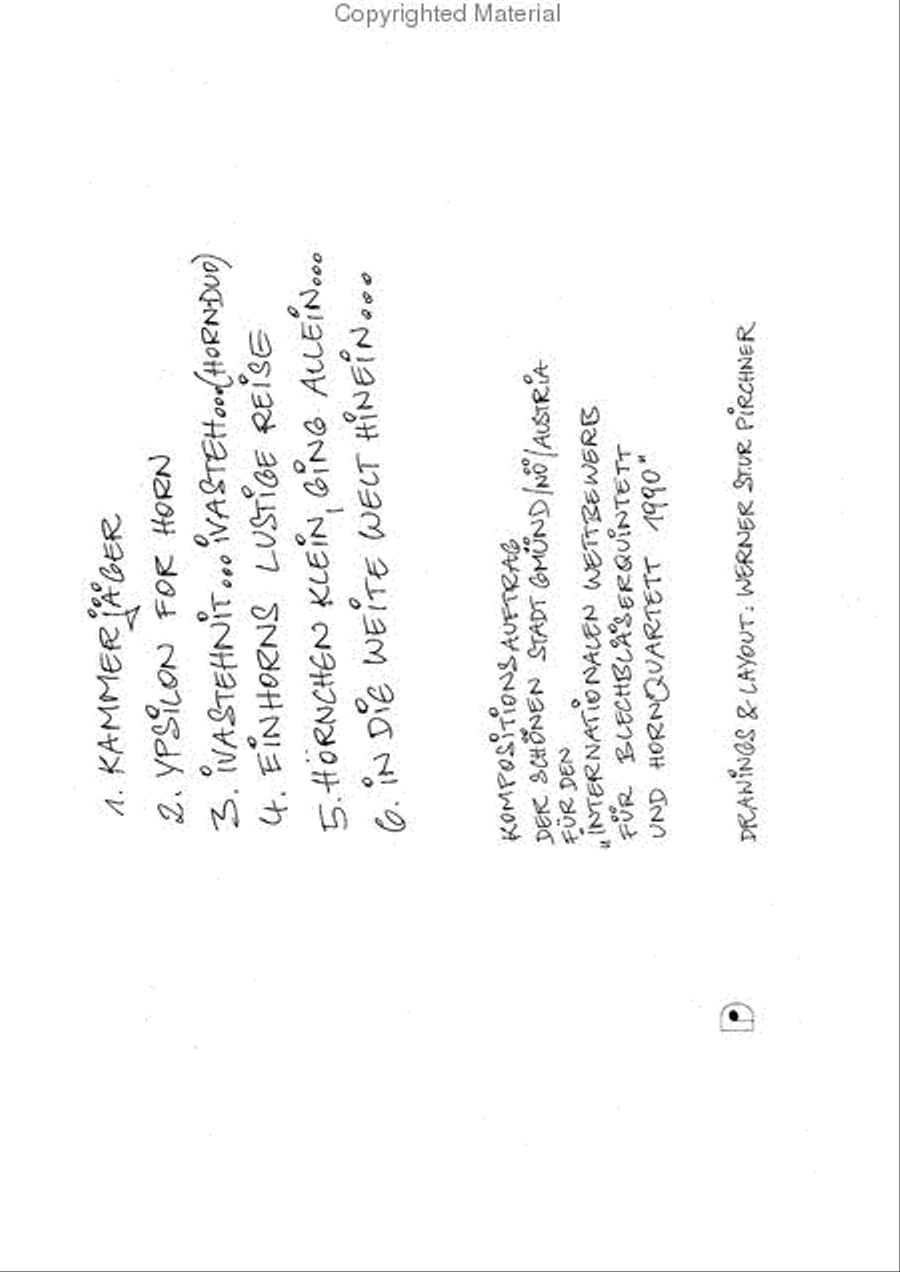 Copyrighted Material
1. KAMMERJÄGER
2. YPSILON FOR HORN
3. IVASTEHNIT... IVASTEH...(HORN-DUO)
4. EINHORNS LUSTIGE REISE
5. HÖRNCHEN KLEIN, GING ALLEIN...
6. IN DIE WEITE WELT HINEIN...
KOMPOSITIONSAUFTRAG
DER SCHÖNEN STADT GMÜND/NÖ/AUSTRIA
FÜR DEN
"INTERNATIONALEN WETTBEWERB
FÜR BLECHBLÄSERQUINTETT
UND HORNQUARTETT 1990"
DRAWINGS & LAYOUT: WERNER STUR PIRCHNER